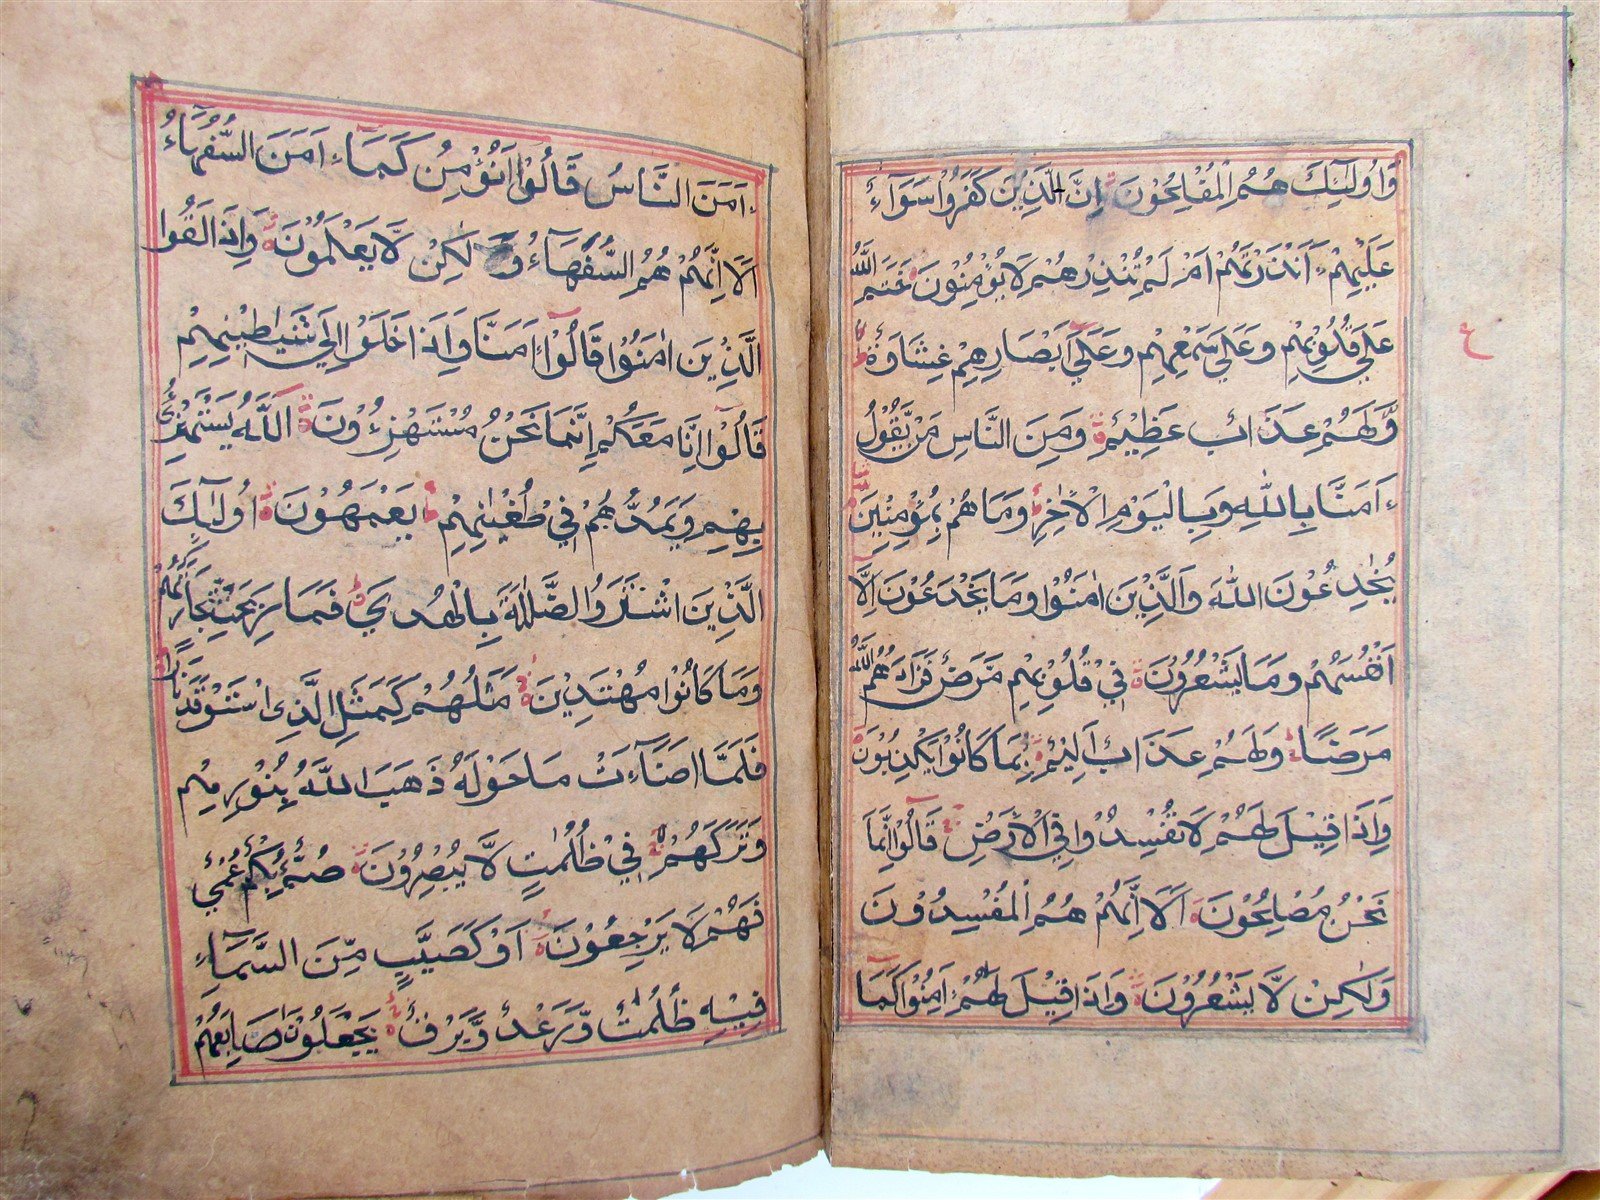 وَاُولٰٓئِكَ هُمُ الْمُفْلِحُوْنَ اِنَّ الَّذِيْنَ كَفَرُوْا سَوَآءٌ
عَلَيْهِمْ ءَاَنْذَرْتَهُمْ اَمْ لَمْ تُنْذِرْهُمْ لَا يُؤْمِنُوْنَ خَتَمَ اللّٰهُ
ع
عَلٰى قُلُوْبِهِمْ وَعَلٰى سَمْعِهِمْ وَعَلٰٓى اَبْصَارِهِمْ غِشَاوَةٌ
وَّلَهُمْ عَذَابٌ عَظِيْمٌ وَمِنَ النَّاسِ مَنْ يَّقُوْلُ
ءَامَنَّا بِاللّٰهِ وَبِالْيَوْمِ الْاٰخِرِ وَمَا هُمْ بِمُؤْمِنِيْنَ
يُخٰدِعُوْنَ اللّٰهَ وَالَّذِيْنَ اٰمَنُوْا وَمَا يَخْدَعُوْنَ اِلَّا
اَنْفُسَهُمْ وَمَا يَشْعُرُوْنَ فِيْ قُلُوْبِهِمْ مَّرَضٌ فَزَادَهُمُ اللّٰهُ
مَرَضًا وَلَهُمْ عَذَابٌ اَلِيْمٌ بِمَا كَانُوْا يَكْذِبُوْنَ
وَاِذَا قِيْلَ لَهُمْ لَا تُفْسِدُوْا فِي الْاَرْضِ قَالُوْٓا اِنَّمَا
نَحْنُ مُصْلِحُوْنَ اَلَا اِنَّهُمْ هُمُ الْمُفْسِدُوْنَ
وَلٰكِنْ لَّا يَشْعُرُوْنَ وَاِذَا قِيْلَ لَهُمْ اٰمِنُوْا كَمَآ
ءَامَنَ النَّاسُ قَالُوْٓا اَنُؤْمِنُ كَمَآ ءَامَنَ السُّفَهَآءُ
اَلَا اِنَّهُمْ هُمُ السُّفَهَآءُ وَ لٰكِنْ لَّا يَعْلَمُوْنَ وَاِذَا لَقُوا
الَّذِيْنَ اٰمَنُوْا قَالُوْٓا ءَامَنَّا وَاِذَا خَلَوْا اِلٰى شَيٰطِيْنِهِمْ
قَالُوْٓا اِنَّا مَعَكُمْ اِنَّمَا نَحْنُ مُسْتَهْزِءُوْنَ اَللّٰهُ يَسْتَهْزِئُ
بِهِمْ وَيَمُدُّهُمْ فِيْ طُغْيٰنِهِمْ يَعْمَهُوْنَ اُولٰٓئِكَ
الَّذِيْنَ اشْتَرَوُا الضَّلٰلَةَ بِالْهُدٰى فَمَا رَبِحَتْ تِّجَارَتُهُمْ
وَمَا كَانُوْا مُهْتَدِيْنَ مَثَلُهُمْ كَمَثَلِ الَّذِى اسْتَوْقَدَ نَارًا
فَلَمَّا اَضَآءَتْ مَا حَوْلَهٗ ذَهَبَ اللّٰهُ بِنُوْرِهِمْ
وَتَرَكَهُمْ فِيْ ظُلُمٰتٍ لَّا يُبْصِرُوْنَ صُمٌّ بُكْمٌ عُمْيٌ
فَهُمْ لَا يَرْجِعُوْنَ اَوْ كَصَيِّبٍ مِّنَ السَّمَآءِ
فِيْهِ ظُلُمٰتٌ وَّرَعْدٌ وَّبَرْقٌ يَجْعَلُوْنَ اَصَابِعَهُمْ